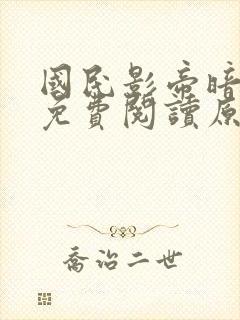 國民影帝暗
免費閱讀原
喬治二世